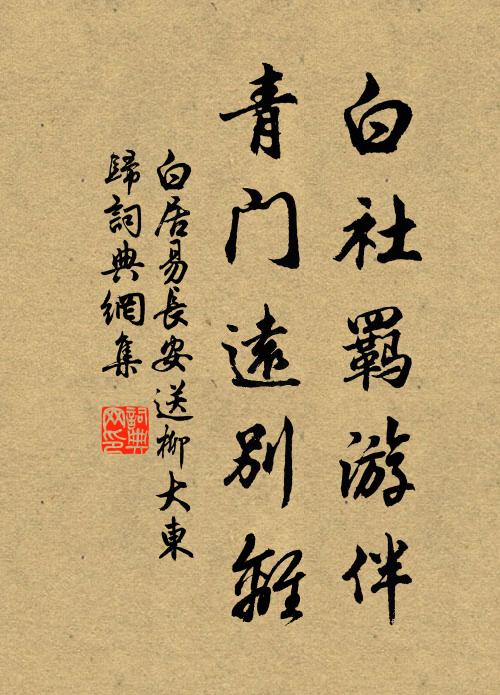 白社羁游伴
青门遠别離
白居易長安送柳大東
歸詞典網集
詞典网印